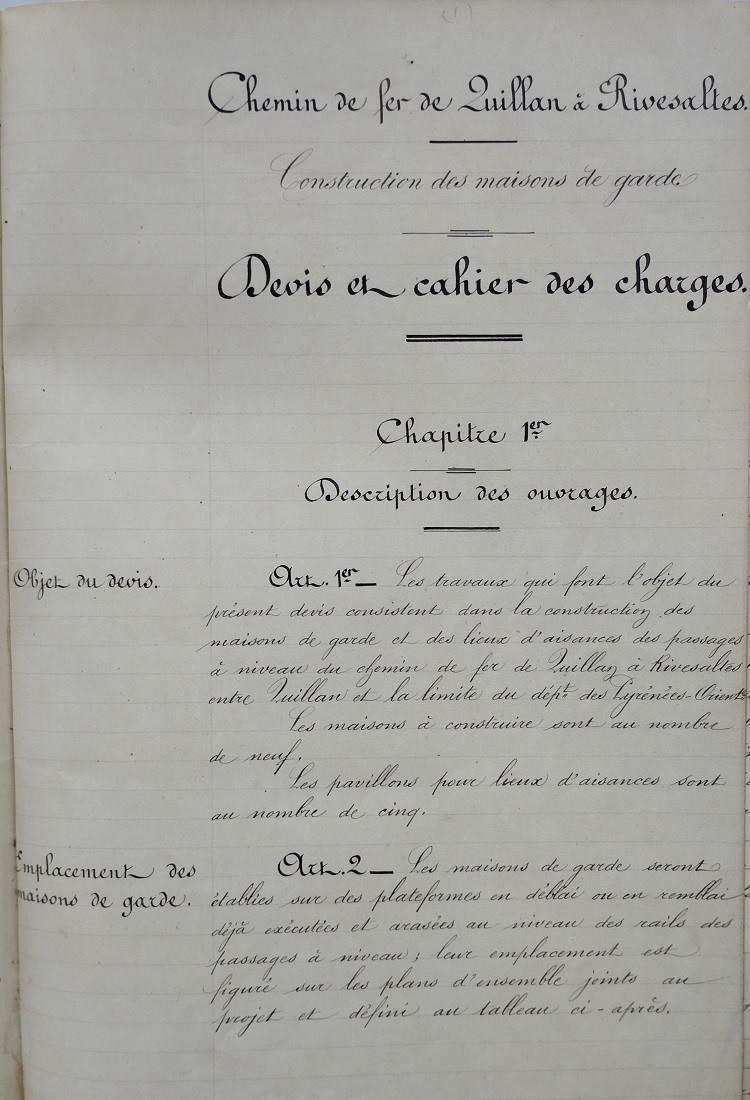 (1)
Chemin de fer de Quillan à Rivesaltes.
Construction des maisons de garde
Devis et cahier des charges.
Chapitre 1er
Description des ouvrages.
Objet du devis.
Art. 1er — Les travaux qui font l'objet du
présent devis consistent dans la construction des
maisons de garde et des lieux d'aisances des passages
à niveau du chemin de fer de Quillan à Rivesaltes
entre Quillan et la limite du dépt. des Pyrénées-Orient
Les maisons à construire sont au nombre
de neuf.
Les pavillons pour lieux d'aisances sont
au nombre de cinq.
Emplacement des
maisons de garde.
Art. 2 — Les maisons de garde seront
établies sur des plateformes en déblai ou en remblai
déjà exécutées et arasées au niveau des rails des
passages à niveau ; leur emplacement est
figuré sur les plans d'ensemble joints au
projet et défini au tableau ci-après.